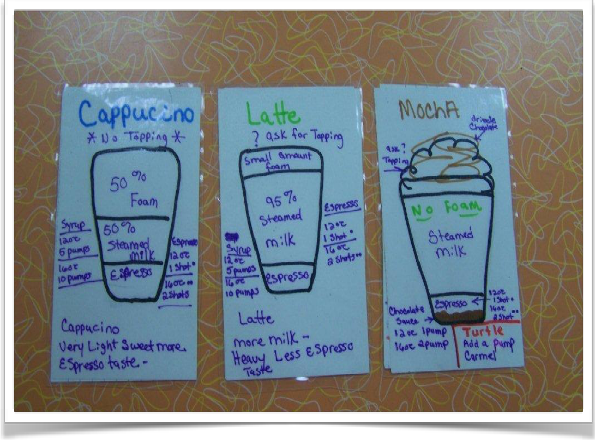 Cappucino
* No Topping *
50%
Foam
50%
Steamed
milk
Espresso
Syrup
12oz
5 pumps
16oz
10 pumps
Espresso
12oz
1 Shot
16oz
2 Shots
Cappucino
Very Light Sweet more
Espresso taste -
Latte
? ask for Topping
Small amount
foam
95%
Steamed
milk
Espresso
Syrup
12oz
5 pumps
16oz
10 pumps
Espresso
12oz
1 Shot
16oz
2 Shots
Latte
more milk -
Heavy Less Espresso
Taste
MochA
drizzle
Chocolate
ask?
Topping
No Foam
Steamed
milk
Espresso
12oz
1 Shot
16oz
2 Shot
Chocolate
Sauce
12oz 1 pump
16oz 2 pump
Turtle
Add a pump
Carmel